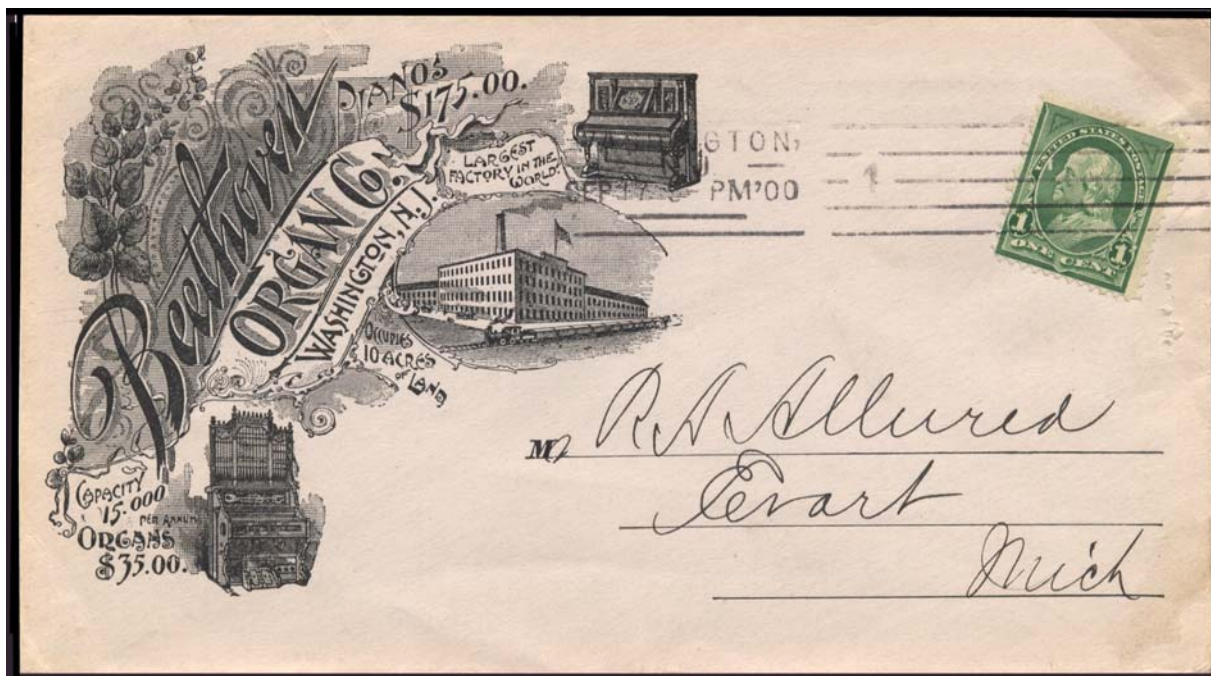 Beethoven
ORGAN CO.
WASHINGTON, N.J.
PIANOS
$175.00.
LARGEST
FACTORY IN THE
WORLD.
OCCUPIES
10 ACRES
OF LAND
CAPACITY
15.000
PER ANNUM
ORGANS
$35.00.
GTON,
SEP 17 PM '00
1
UNITED STATES POSTAGE
1 1
ONE CENT
Mr R. A. Allured
Evart
Mich